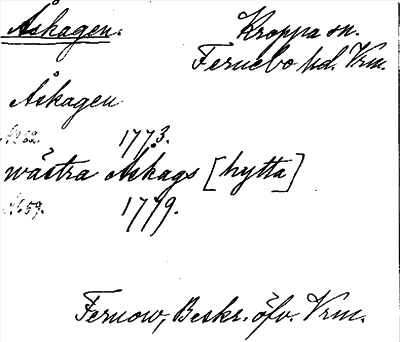 Åskagen. Kroppa sn.
Fernebo hd. Vrm.
Åskagen
1773.
wästra Åskags [hytta]
s. 659. 1779.
Fernow, Beskr. öfv. Vrm.